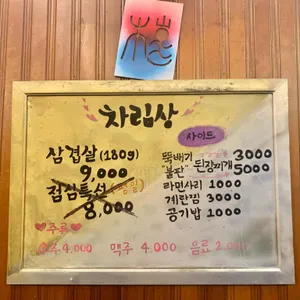 차림상
삼겹살 (180g)
9,000
점심특선 (평일)
8,000
♥주류♥
소주 4,000 맥주 4.000 음료 2.000
사이드
뚝배기 된장찌개 3000
"불판" 5000
라면사리 1000
계란찜 3000
공기밥 1000